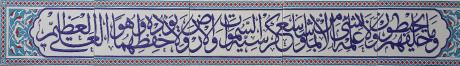 وما خلفهم ولا يحيطون بشيء من علمه إلا بما شاء وسع كرسيه السموات والارض ولا يؤده حفظهما وهو العلي العظيم